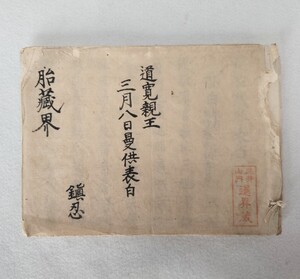 道寛親王
三月八日曼供表白
胎藏界
鎮忍